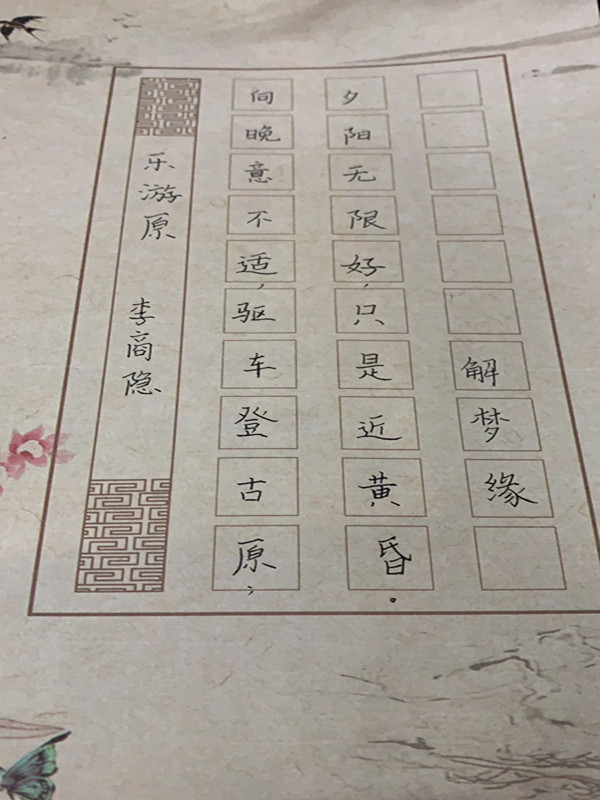 乐游原 李商隐
向晚意不适，驱车登古原，
夕阳无限好，只是近黄昏。
解梦缘